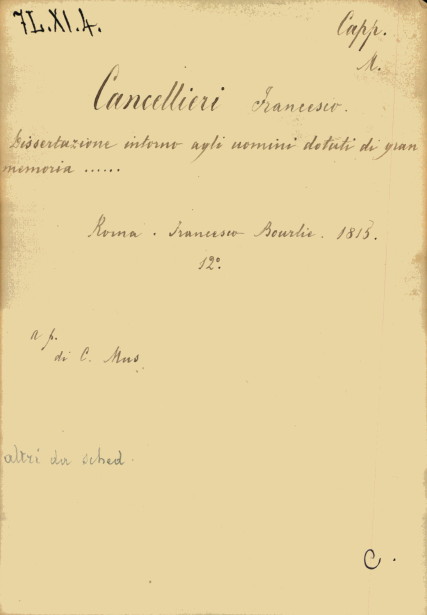 7L.XI.4.
Capp.
M.
Cancellieri Francesco.
Dissertazione intorno agli uomini dotati di gran
memoria ......
Roma. Francesco Bourlie. 1815.
12°.
a p.
di C. Mus.
altri da sched.
C.